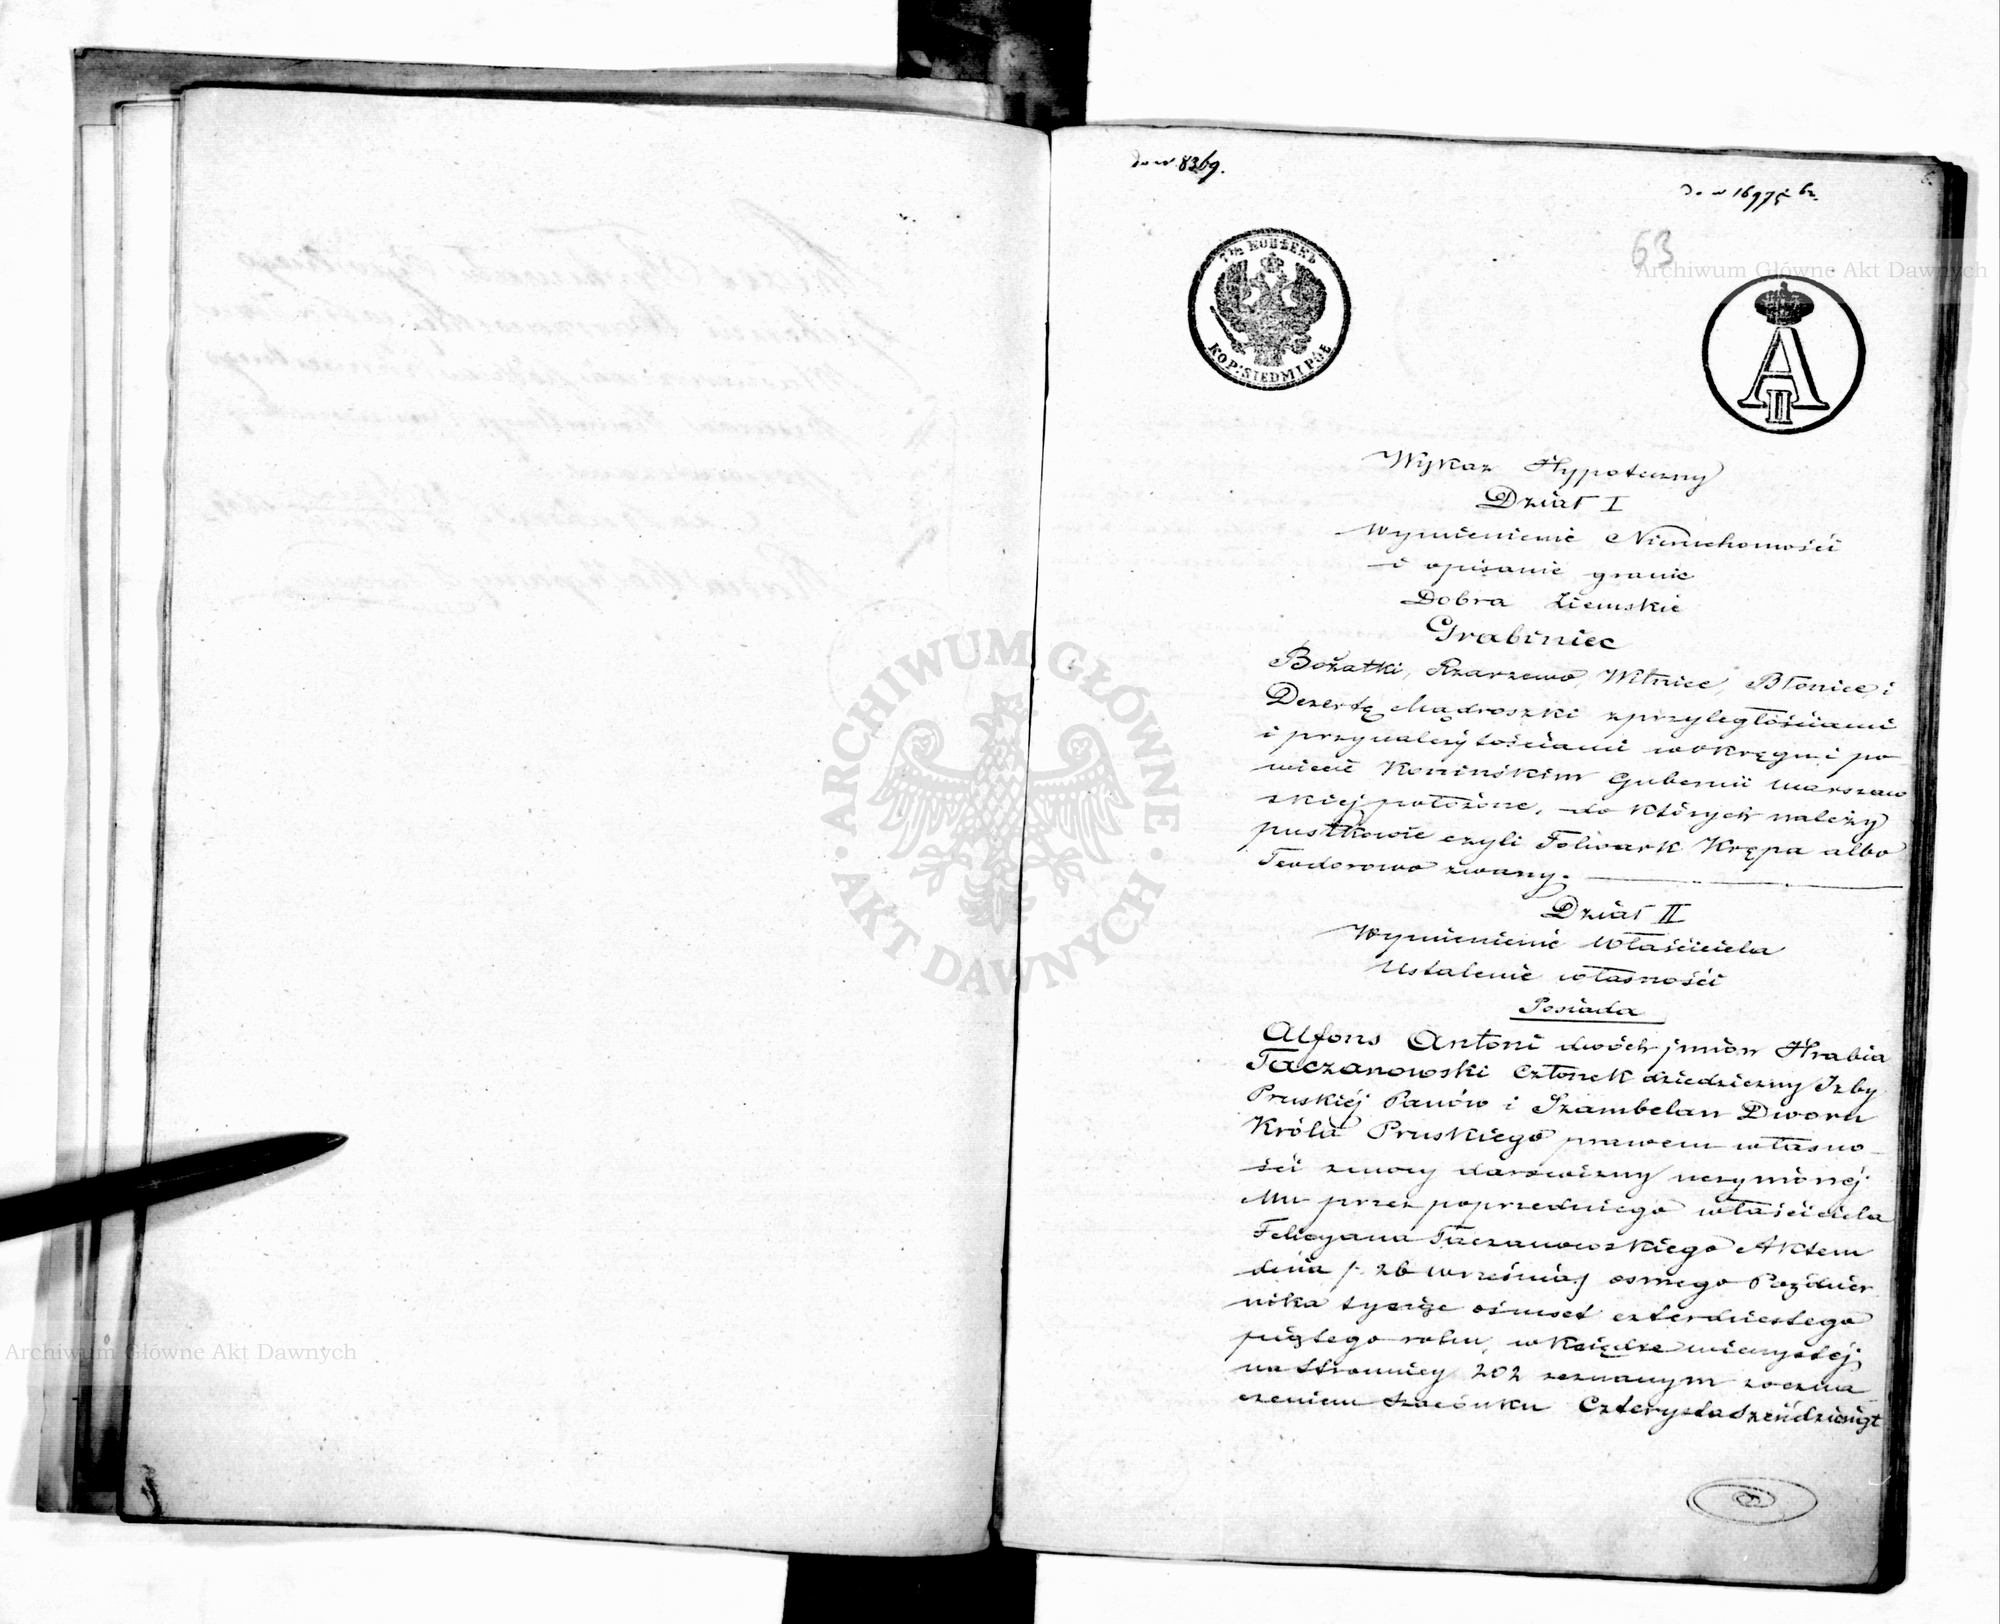 do nr 8369.
do nr 16975 62.
63
6.
7½ КОПѢЕКЪ
KOP: SIEDM I PÓŁ
A II
Archiwum Główne Akt Dawnych
Wykaz Hypoteczny
Dział I
Wymienienie Nieruchomości
i opisanie granic
Dobra Ziemskie
Grabiniec
Bożatki, Rzarzewo, Witnice, Błonice, i
Dezertę Mądroszki z przyległościami
i przynależytościami w okręgu i po
wiecie Konińskim Gubernii Warszaw
skiej położone, do których należy
pustkowie czyli Folwark Krępa albo
Teodorowo zwany.
Dział II
Wymienienie Właściciela
Ustalenie własności
Posiada
Alfons Antoni dwóch imion Hrabia
Taczanowski Członek dziedziczny Izby
Pruskiéj Panów i Szambelan Dworu
Króla Pruskiego prawem własno
ści z mocy darowizny uczynionéj
Mu przez poprzedniego właściciela
Felicyana Taczanowskiego Aktem
dnia / 26 września / osmego Paździer
nika tysiąc ośmset czterdziestego
piątego roku, w Księdze wieczystéj
na Stronnicy 202 zeznanym z ozna
czeniem Szacunku Czterysta Sześćdziesiąt
ARCHIWUM GŁÓWNE · AKT DAWNYCH ·
Archiwum Główne Akt Dawnych